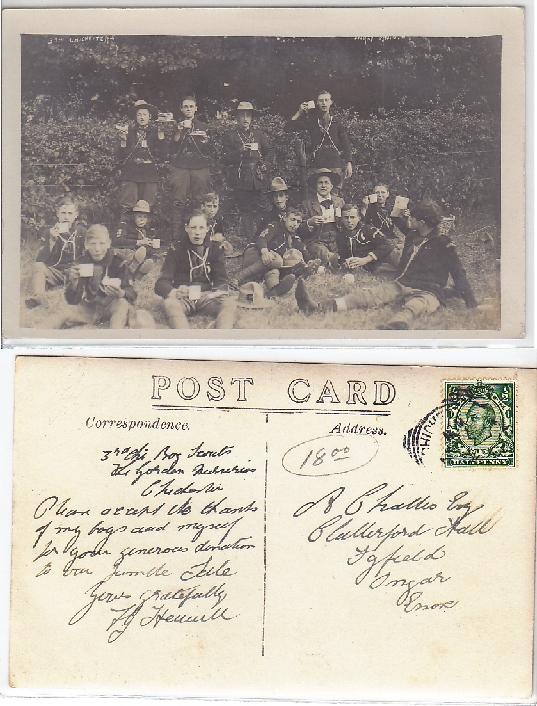 3rd CHICHESTER
POST CARD
Correspondence.
Address.
18 00
HALFPENNY
3rd Chi Boy Scouts
The Gordon Nurseries
Chichester
Please accept the thanks
of my boys and myself
for your generous donation
to our Jumble Sale
Yours gratefully
R Challis Esq
Clatterford Hall
Fyfield
Ongar
Essex